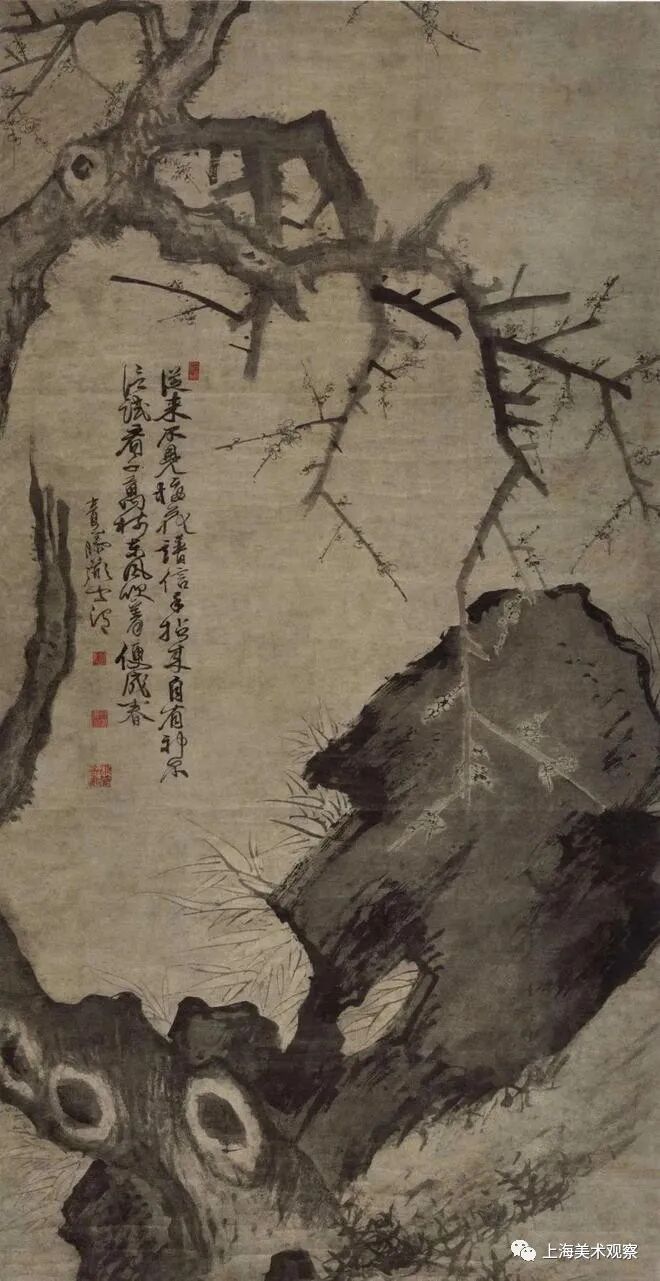 從来不見梅花譜信手拈来自有神不
信試看千萬樹東風吹着便成春
青藤道士渭
上海美术观察